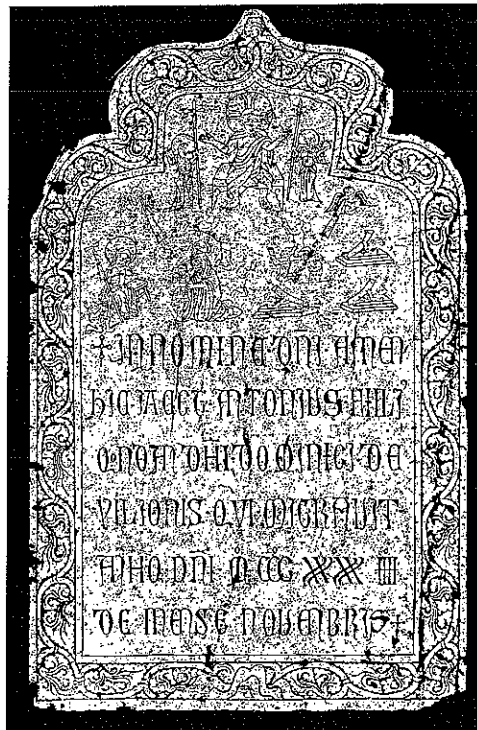 + IN NOMINE DNI AMEN
HIC JACET ANTONIUS FILI
QONDA DNI DOMINICI DE
VILIONIS QVI MIGRAVIT
ANNO DNI M CCC XXXX IIII
DE MENSE NOVEMBRIS +